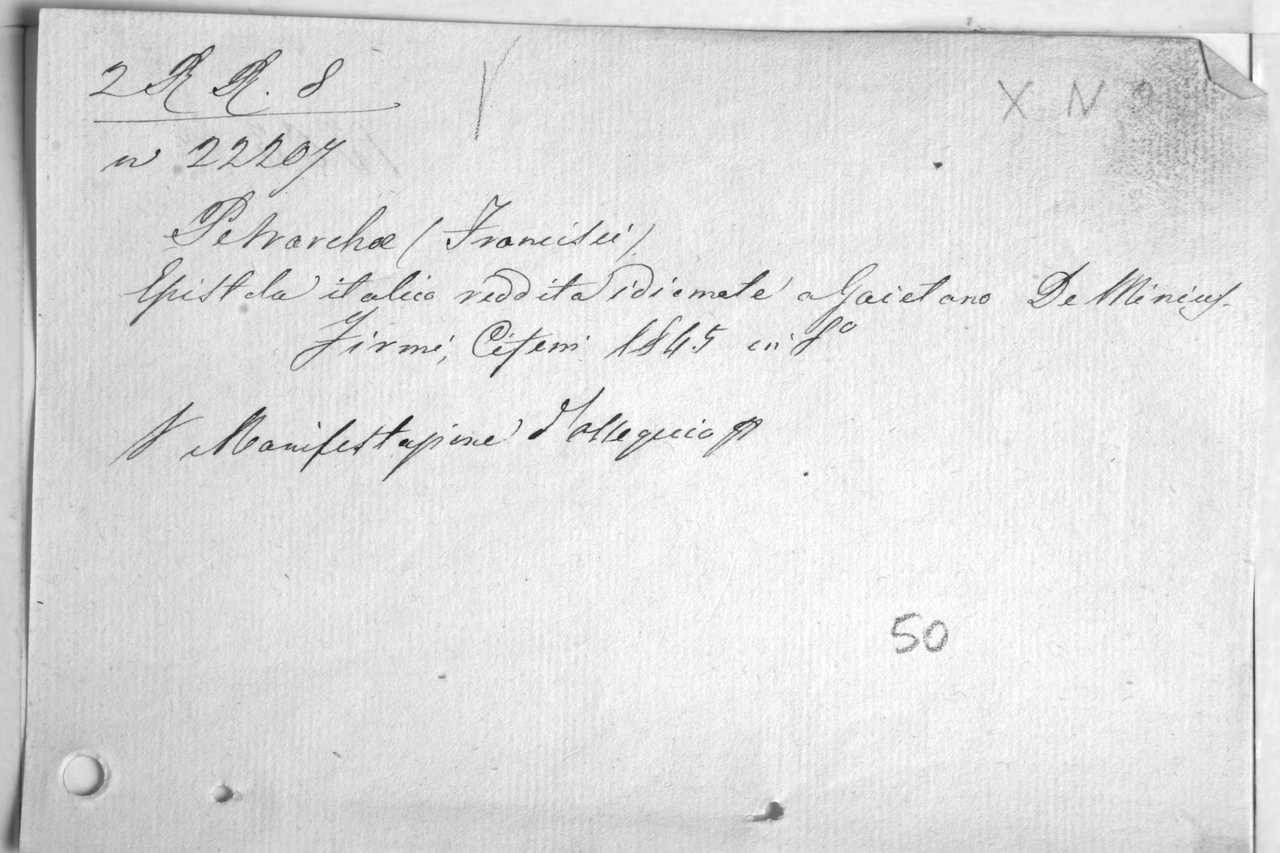 2 R R. 8
n 22207
X N
Petrarchæ (Francisci)
Epistola italico reddita idiomate a Gaietano De Minicis.
Firmi, Ciferri 1845 in 8º
V Manifestazione d'ossequio
50